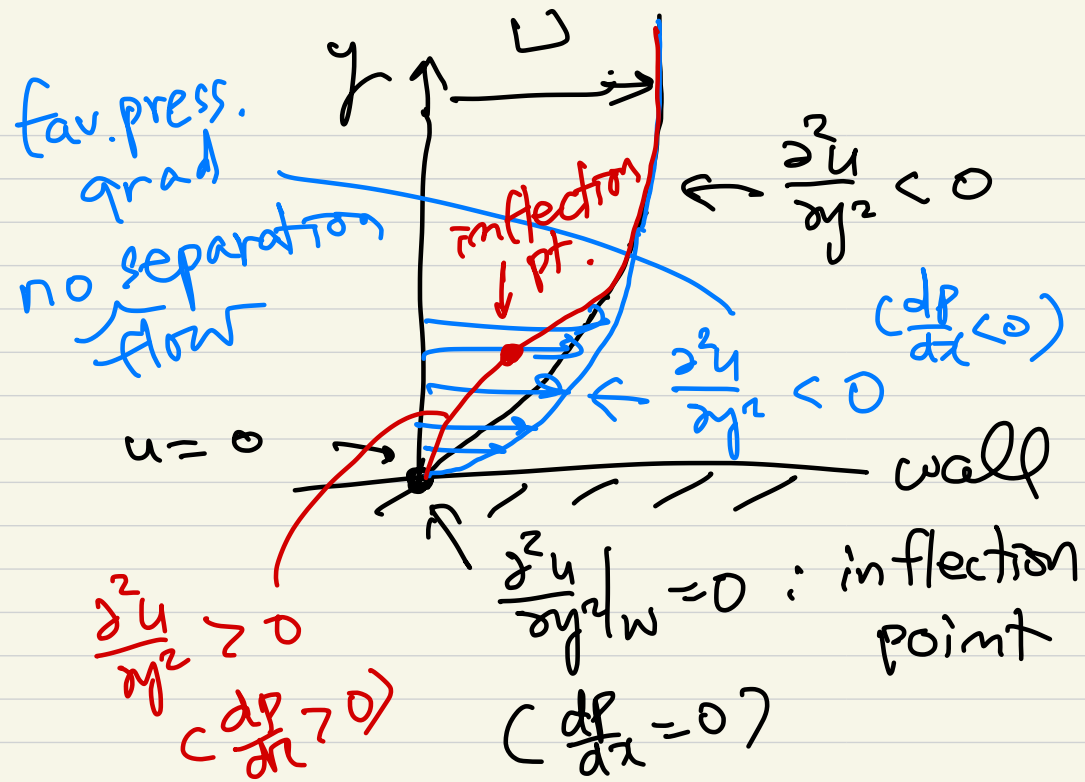 y
U
fav. press.
grad
no separation
flow
inflection
pt.
← ∂²u/∂y² < 0
(dp/dx < 0)
← ∂²u/∂y² < 0
u = 0
wall
∂²u/∂y²|w = 0 : inflection
point
(dp/dx = 0)
∂²u/∂y² > 0
(dp/dx > 0)